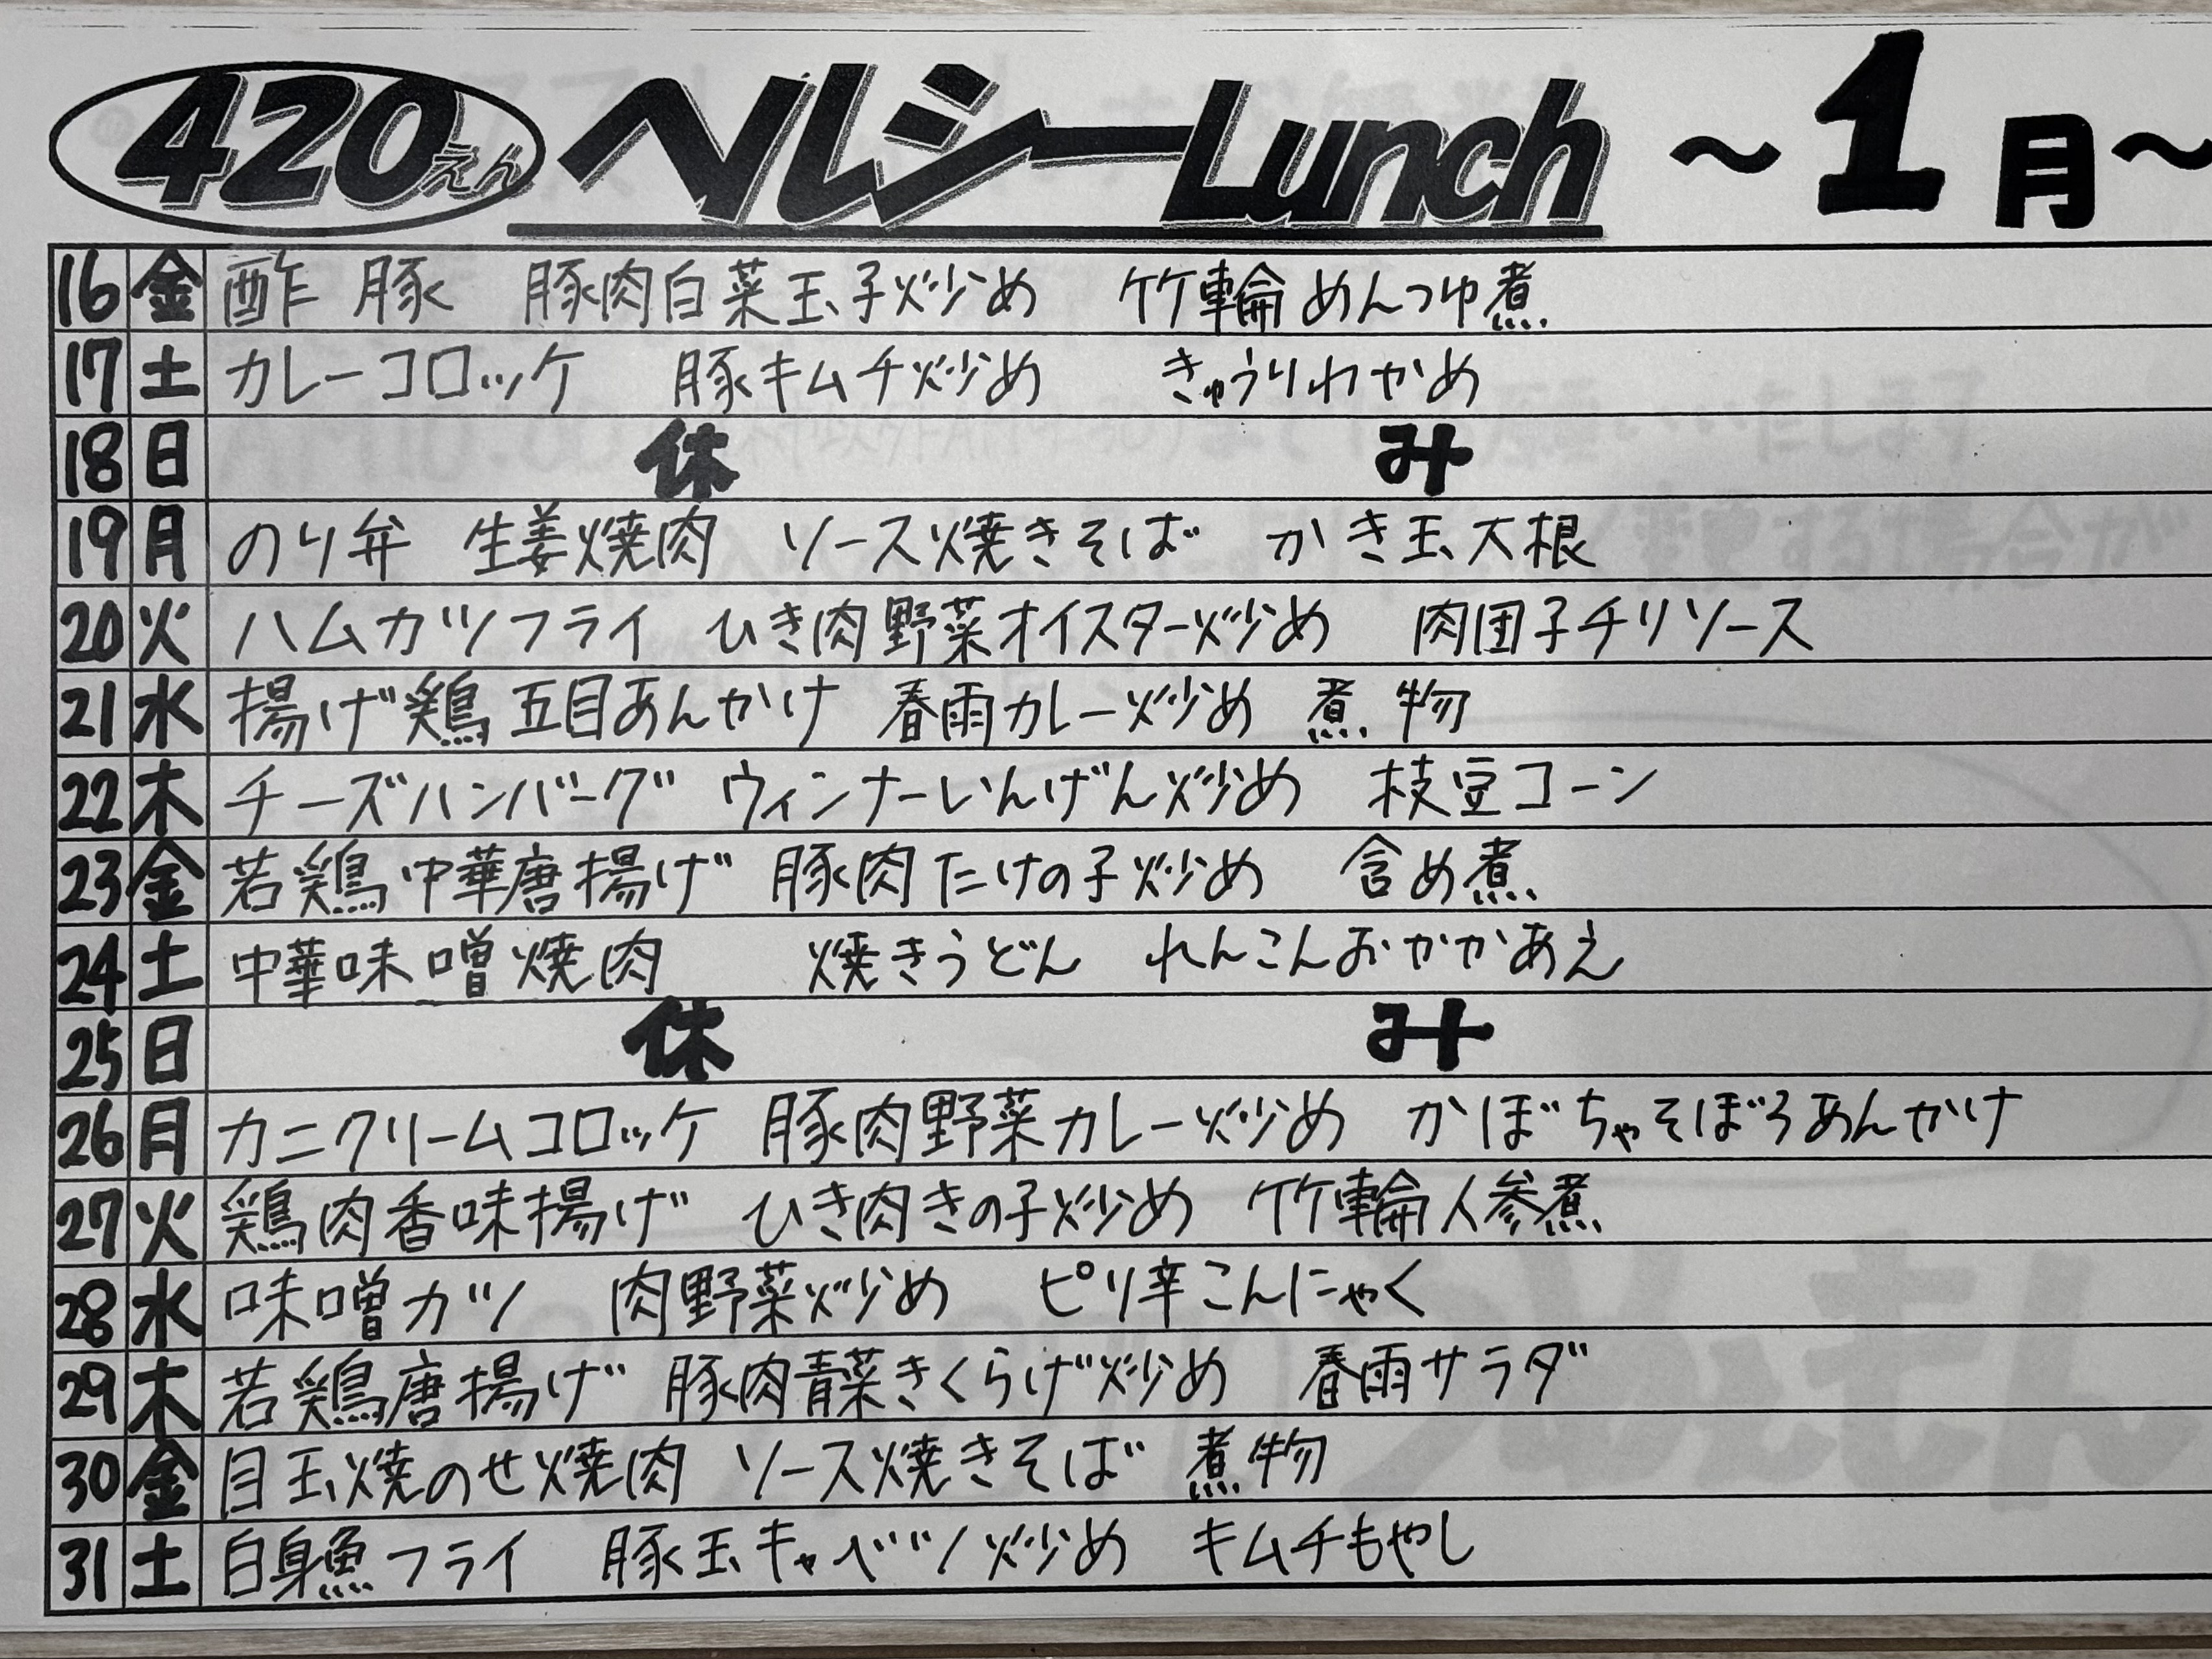 420えん ヘルシーLunch ～1月～
16 金 酢豚 豚肉白菜玉子炒め 竹輪めんつゆ煮
17 土 カレーコロッケ 豚キムチ炒め きゅうりわかめ
18 日 休み
19 月 のり弁 生姜焼肉 ソース焼きそば かき玉大根
20 火 ハムカツフライ ひき肉野菜オイスター炒め 肉団子チリソース
21 水 揚げ鶏五目あんかけ 春雨カレー炒め 煮物
22 木 チーズハンバーグ ウィンナーいんげん炒め 枝豆コーン
23 金 若鶏中華唐揚げ 豚肉たけの子炒め 含め煮
24 土 中華味噌焼肉 焼きうどん れんこんおかかあえ
25 日 休み
26 月 カニクリームコロッケ 豚肉野菜カレー炒め かぼちゃそぼろあんかけ
27 火 鶏肉香味揚げ ひき肉きの子炒め 竹輪人参煮
28 水 味噌カツ 肉野菜炒め ピリ辛こんにゃく
29 木 若鶏唐揚げ 豚肉青菜きくらげ炒め 春雨サラダ
30 金 目玉焼のせ焼肉 ソース焼きそば 煮物
31 土 白身魚フライ 豚玉キャベツ炒め キムチもやし